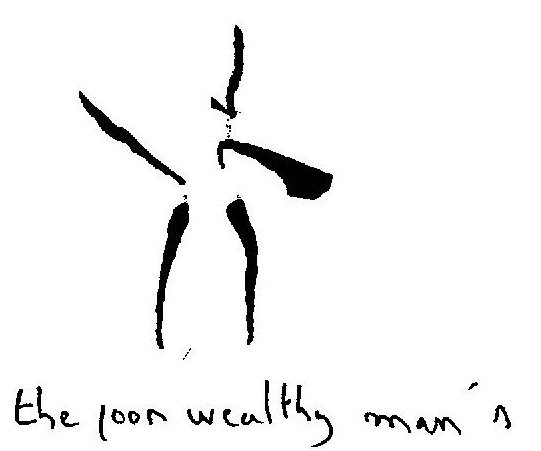 the poor wealthy man's